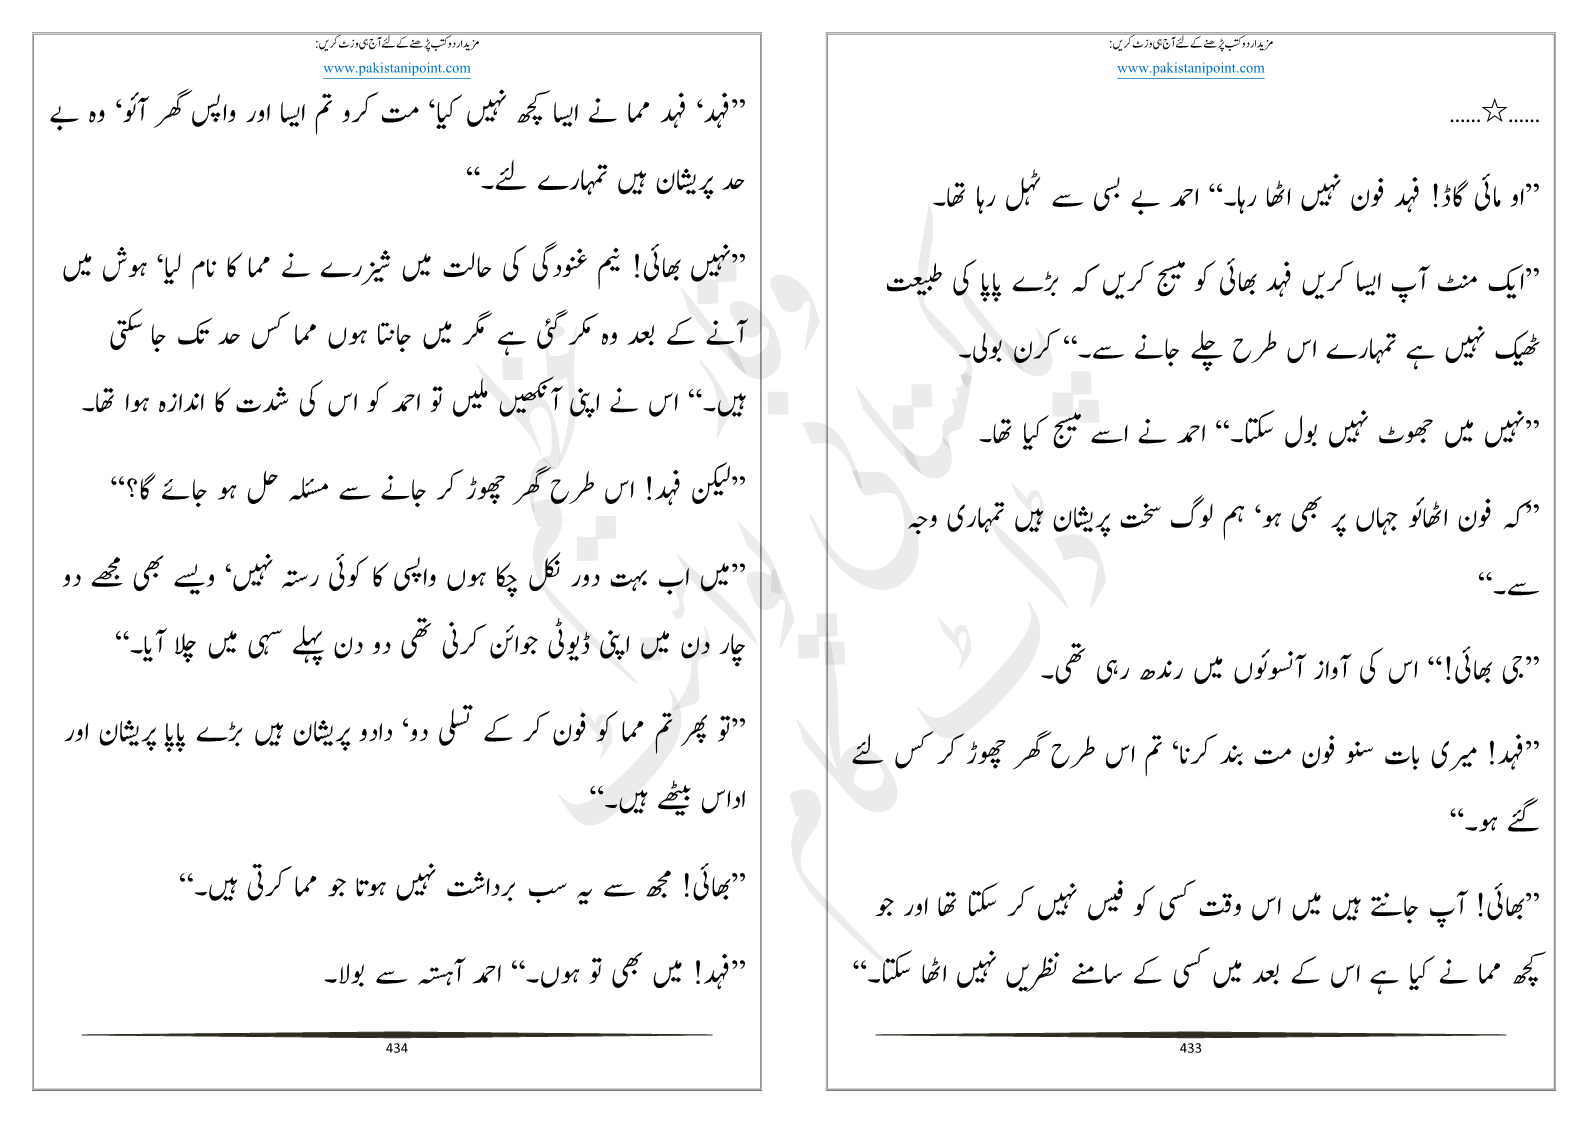 مزید اردو کتب پڑھنے کے لئے آج ہی وزٹ کریں:
www.pakistanipoint.com
......☆......
”او مائی گاڈ! فہد فون نہیں اٹھا رہا۔“ احمد بے بسی سے ٹہل رہا تھا۔
”ایک منٹ آپ ایسا کریں فہد بھائی کو میسج کریں کہ بڑے پاپا کی طبیعت
ٹھیک نہیں ہے تمہارے اس طرح چلے جانے سے۔“ کرن بولی۔
”نہیں میں جھوٹ نہیں بول سکتا۔“ احمد نے اسے میسج کیا تھا۔
”کہ فون اٹھائو جہاں پر بھی ہو‘ ہم لوگ سخت پریشان ہیں تمہاری وجہ
سے۔“
”جی بھائی!“ اس کی آواز آنسوئوں میں رندھ رہی تھی۔
”فہد! میری بات سنو فون مت بند کرنا‘ تم اس طرح گھر چھوڑ کر کس لئے
گئے ہو۔“
”بھائی! آپ جانتے ہیں میں اس وقت کسی کو فیس نہیں کر سکتا تھا اور جو
کچھ مما نے کیا ہے اس کے بعد میں کسی کے سامنے نظریں نہیں اٹھا سکتا۔“
433
مزید اردو کتب پڑھنے کے لئے آج ہی وزٹ کریں:
www.pakistanipoint.com
”فہد‘ فہد مما نے ایسا کچھ نہیں کیا‘ مت کرو تم ایسا اور واپس گھر آئو‘ وہ بے
حد پریشان ہیں تمہارے لئے۔“
”نہیں بھائی! نیم غنودگی کی حالت میں شیزرے نے مما کا نام لیا‘ ہوش میں
آنے کے بعد وہ مکر گئی ہے مگر میں جانتا ہوں مما کس حد تک جا سکتی
ہیں۔“ اس نے اپنی آنکھیں ملیں تو احمد کو اس کی شدت کا اندازہ ہوا تھا۔
”لیکن فہد! اس طرح گھر چھوڑ کر جانے سے مسئلہ حل ہو جائے گا؟“
”میں اب بہت دور نکل چکا ہوں واپسی کا کوئی رستہ نہیں‘ ویسے بھی مجھے دو
چار دن میں اپنی ڈیوٹی جوائن کرنی تھی دو دن پہلے سہی میں چلا آیا۔“
”تو پھر تم مما کو فون کر کے تسلی دو‘ دادو پریشان ہیں بڑے پاپا پریشان اور
اداس بیٹھے ہیں۔“
”بھائی! مجھ سے یہ سب برداشت نہیں ہوتا جو مما کرتی ہیں۔“
”فہد! میں بھی تو ہوں۔“ احمد آہستہ سے بولا۔
434
پاکستانی پوائنٹ
ڈاٹ کام